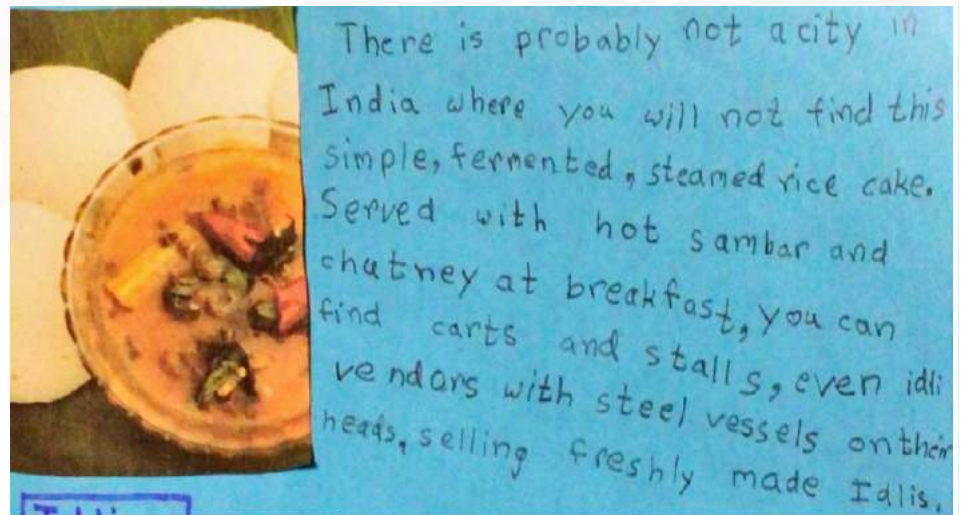 There is probably not a city in
India where you will not find this
simple, fermented, steamed rice cake.
Served with hot sambar and
chatney at breakfast, you can
find carts and stalls, even idli
vendors with steel vessels on their
heads, selling freshly made Idlis.